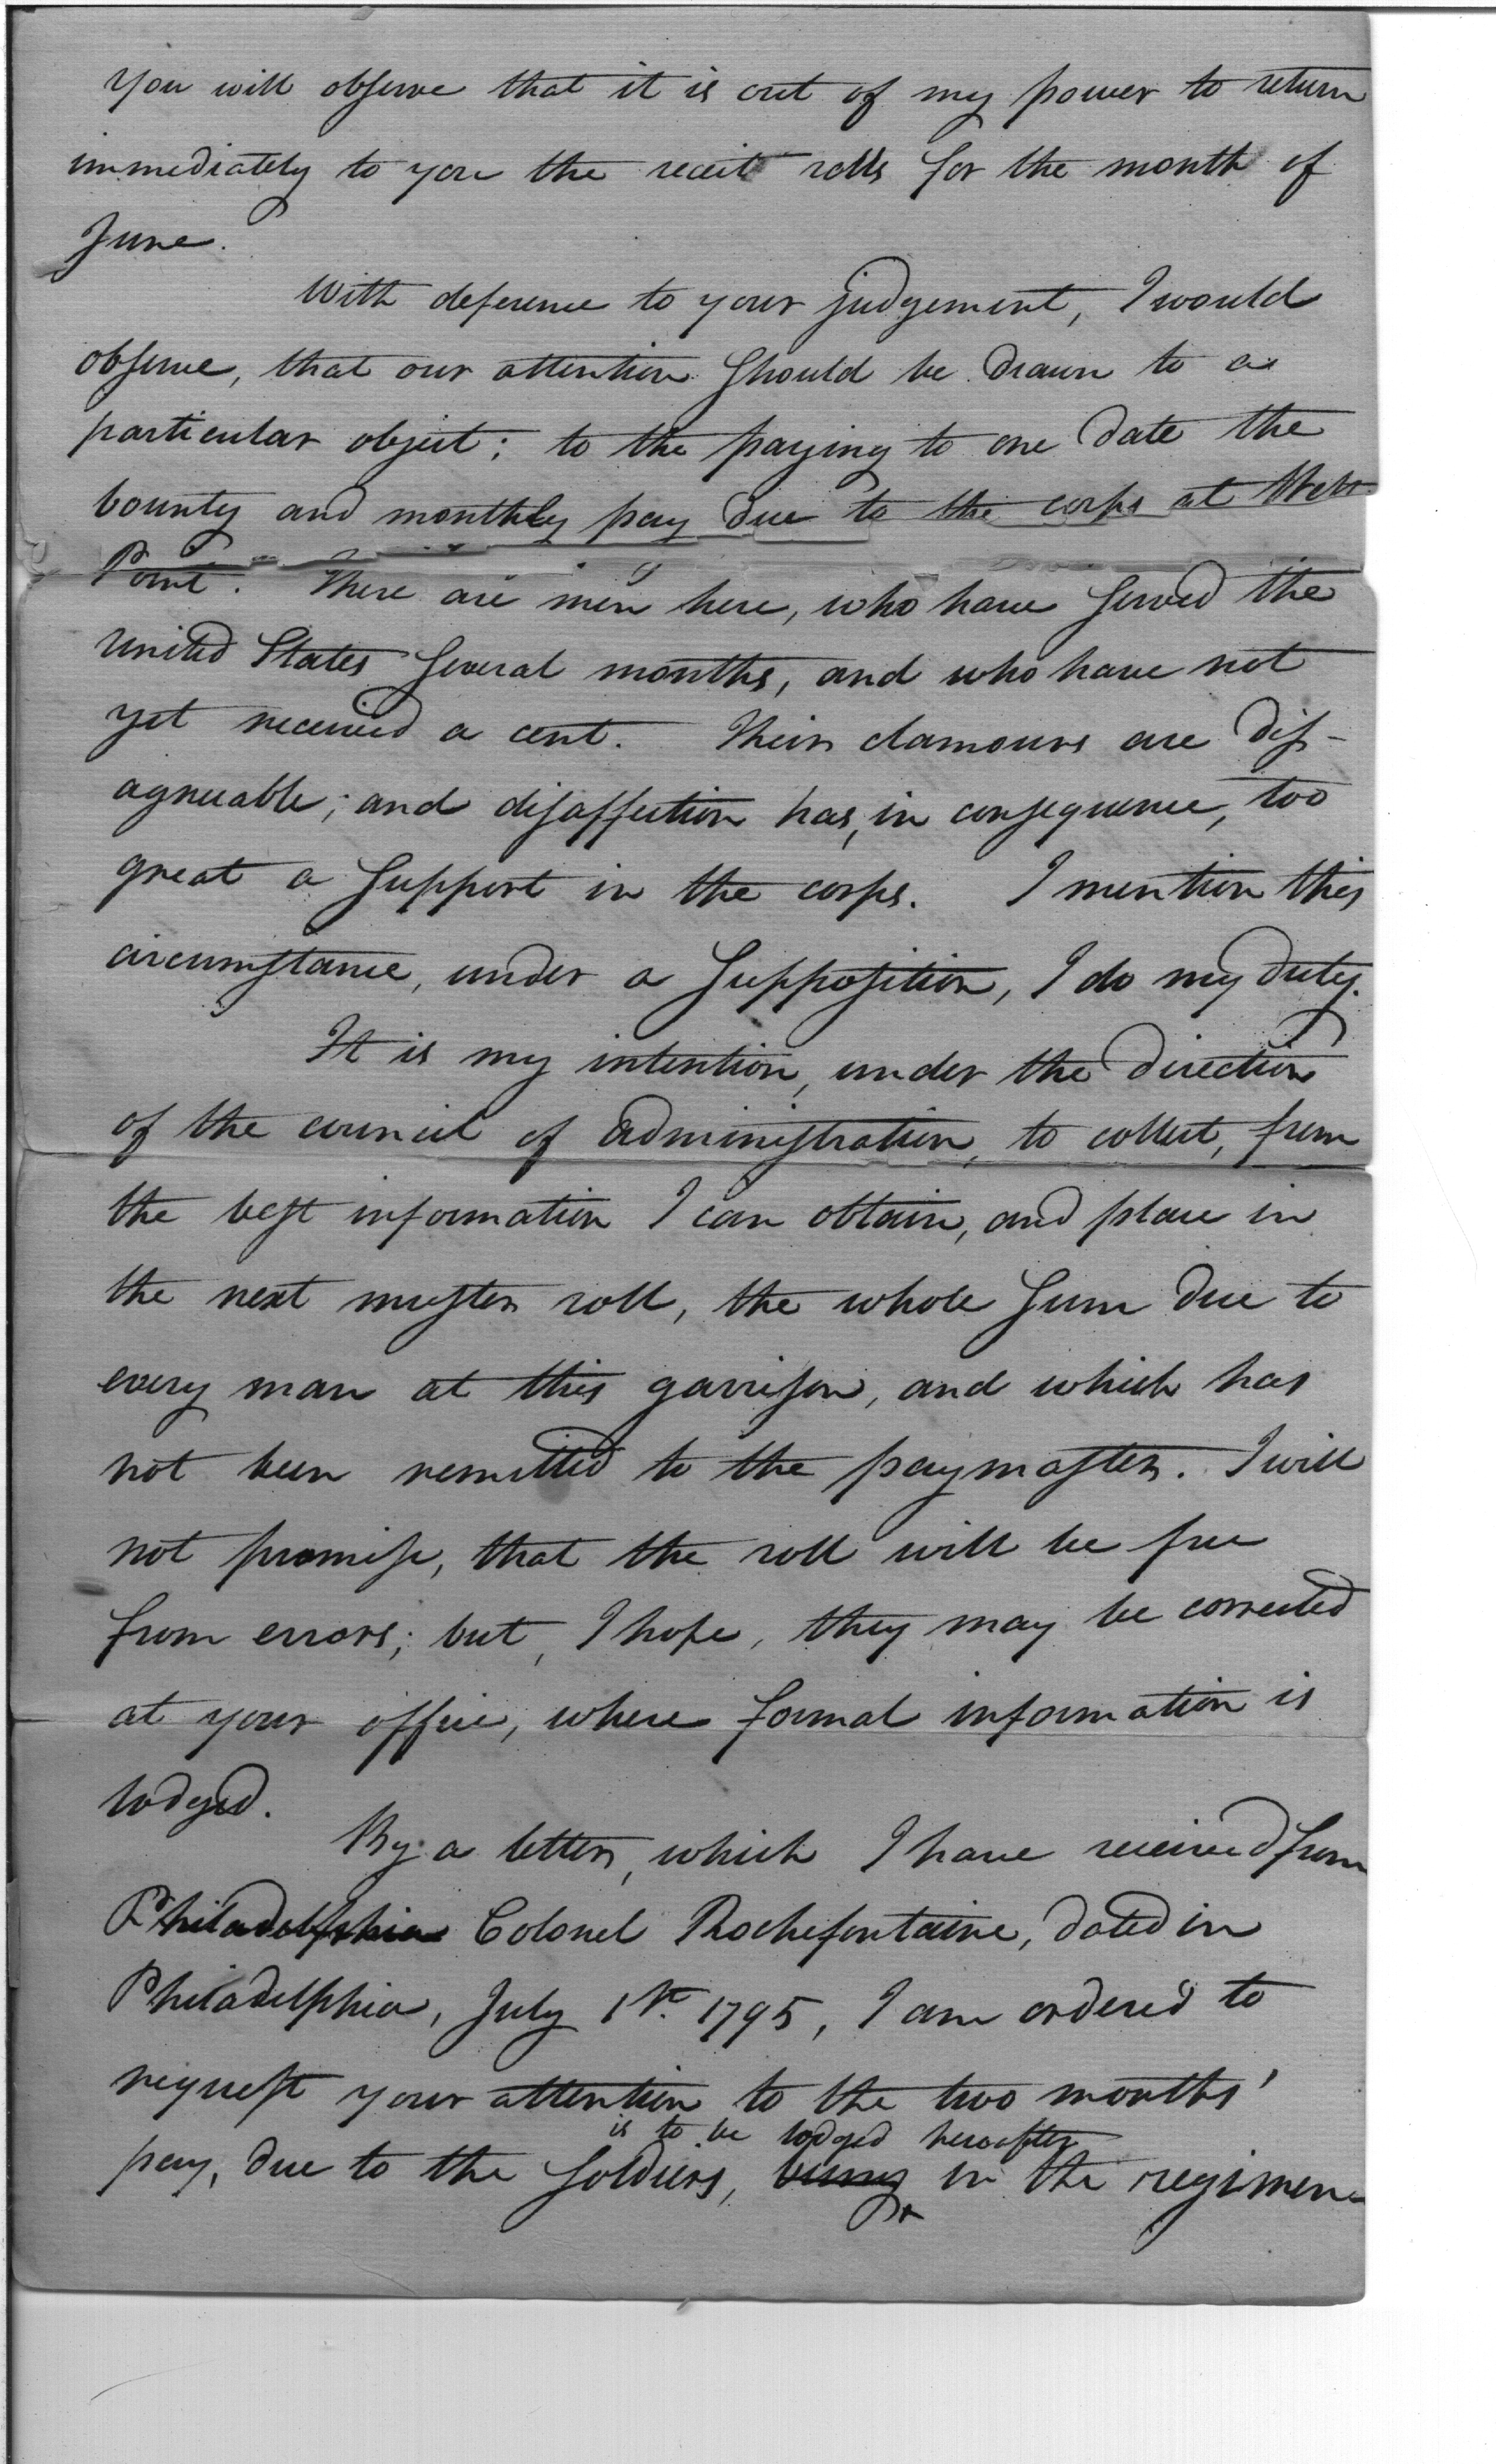 You will observe that it is out of my power to return
immediately to you the receit rolls for the month of
June.
With deference to your judgement, I would
observe, that our attention should be drawn to a
particular object; to the paying to one date the
bounty and monthly pay due to the corps at West
Point. There are men here, who have served the
United States several months, and who have not
yet received a cent. Their clamours are dis-
agreeable; and disaffection has, in consequence, too
great a support in the corps. I mention this
circumstance, under a supposition, I do my duty.
It is my intention, under the direction
of the council of administration, to collect, from
the best information I can obtain, and place in
the next muster roll, the whole sum due to
every man at this garrison, and which has
not been remitted to the paymaster. I will
not promise, that the roll will be free
from errors; but, I hope, they may be corrected
at your office, where formal information is
lodged.
By a letter, which I have received from
Philadelphia Colonel Rochefontaine, dated in
Philadelphia, July 1st. 1795, I am ordered to
request your attention to the two months'
is to be lodged hereafter
pay, due to the soldiers, being in the regimen-